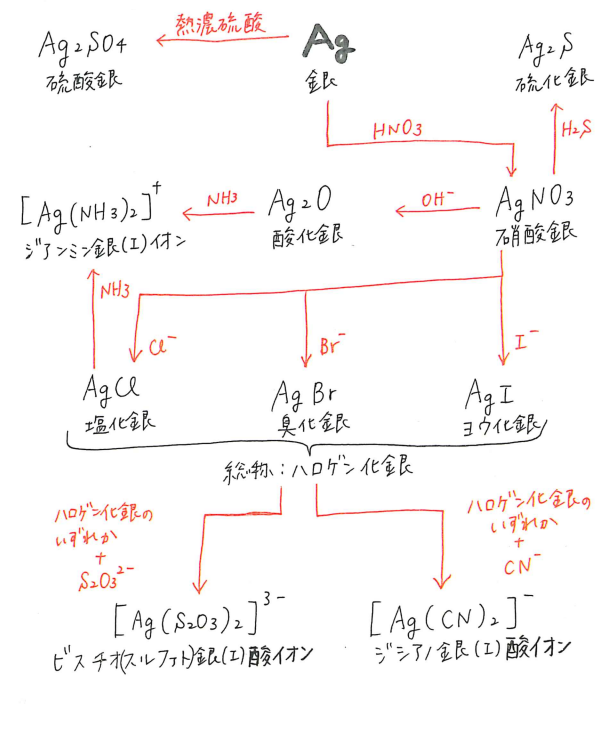 熱濃硫酸
Ag2SO4
硫酸銀
Ag
銀
Ag2S
硫化銀
HNO3
H2S
[Ag(NH3)2]+
ジアンミン銀(I)イオン
NH3
Ag2O
酸化銀
OH-
AgNO3
硝酸銀
NH3
Cl-
Br-
I-
AgCl
塩化銀
AgBr
臭化銀
AgI
ヨウ化銀
総称:ハロゲン化銀
ハロゲン化銀の
いずれか
+
S2O3 2-
ハロゲン化銀の
いずれか
+
CN-
[Ag(S2O3)2]3-
ビスチオ(スルファト)銀(I)酸イオン
[Ag(CN)2]-
ジシアノ銀(I)酸イオン